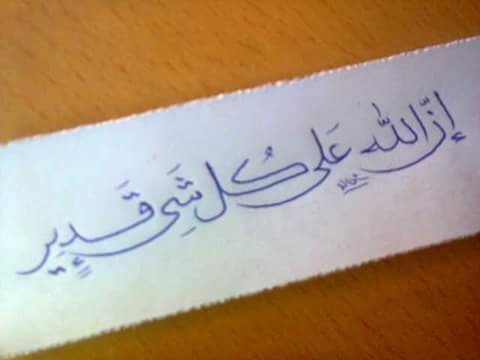 إنّ الله على كُل شَيِ قَدِير